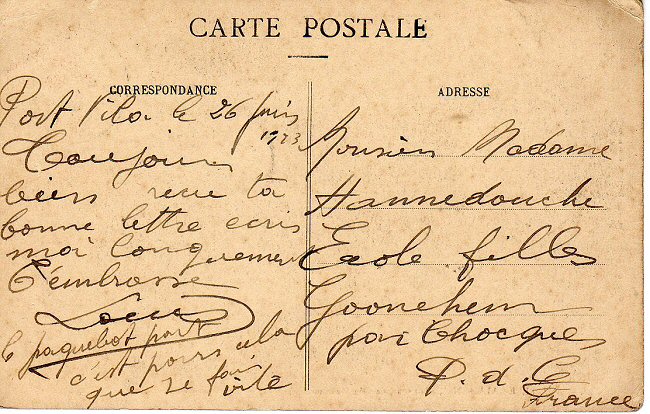 CARTE POSTALE
CORRESPONDANCE
Port Vila le 26 juin
1923
Toujours
bien recu ta
bonne lettre ecris
moi longuement
t'embrasse
Louis
le paquebot part
c'est pour cela
que je fais vite
ADRESSE
Monsieur Madame
Hannedouche
Ecole filles
Gonnehem
par Chocques
P. d. C
France